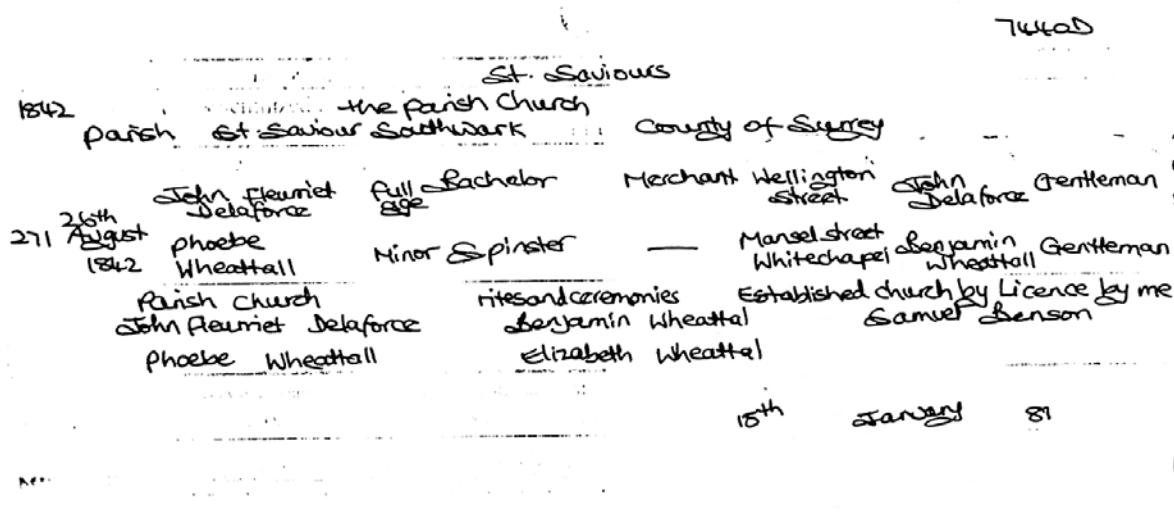 7440D
St. Saviours
1842 the parish Church
parish St. Saviour Southwark County of Surrey
John Fleuriet Delaforce full age Bachelor Merchant Wellington Street John Delaforce Gentleman
271 26th August 1842 Phoebe Wheattall Minor Spinster — Mansel street Whitechapel Benjamin Wheattall Gentleman
Parish Church rites and ceremonies Established church by Licence by me
John Fleuriet Delaforce Benjamin Wheattal Samuel Benson
Phoebe Wheattall Elizabeth Wheattal
15th January 81